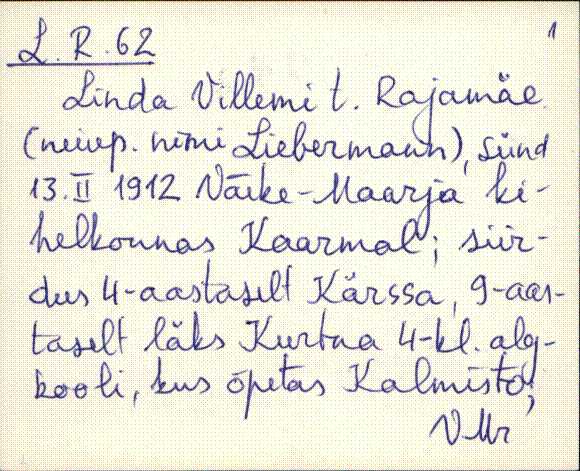 L. R. 62
1
Linda Villemi t. Rajamäe
(neiup. nimi Liebermann), sünd
13. II 1912 Väike-Maarja ki-
helkonnas Kaarmal; siir-
dus 4-aastaselt Kärssa, 9-aas-
taselt läks Kurtna 4-kl. alg-
kooli, kus õpetas Kalmisto;
VMr